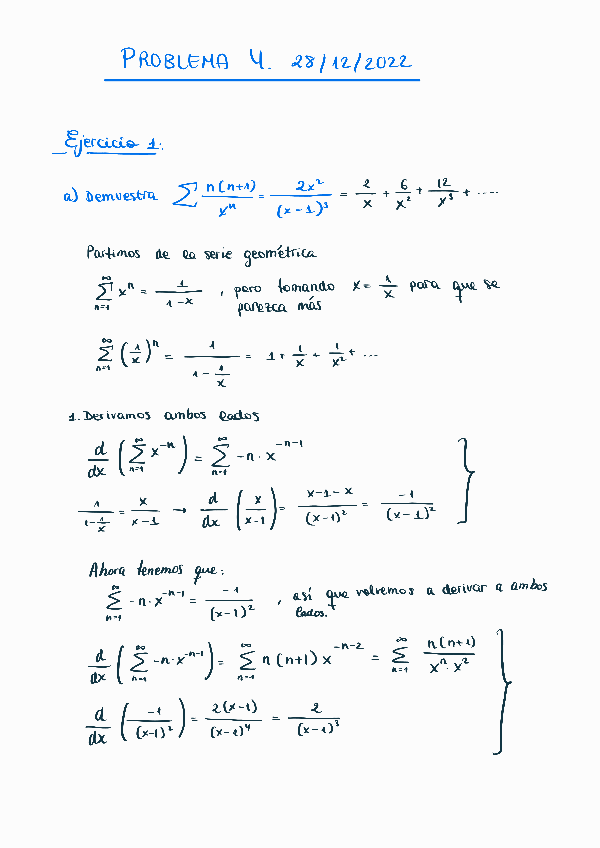 PROBLEMA 4. 28/12/2022
Ejercicio 1:
a) Demuestra ∑ n(n+1)/x^n = 2x²/(x-1)³ = 2/x + 6/x² + 12/x³ + ....
Partimos de la serie geométrica
∑_{n=1}^{∞} x^n = 1/(1-x) , pero tomando x = 1/x para que se
parezca más
∑_{n=1}^{∞} (1/x)^n = 1/(1 - 1/x) = 1 + 1/x + 1/x² + ...
1. Derivamos ambos lados
d/dx (∑_{n=1}^{∞} x^{-n}) = ∑_{n=1}^{∞} -n · x^{-n-1}
1/(1-1/x) = x/(x-1) → d/dx (x/(x-1)) = (x-1-x)/(x-1)² = -1/(x-1)²
Ahora tenemos que:
∑_{n=1}^{∞} -n · x^{-n-1} = -1/(x-1)² , así que volvemos a derivar a ambos
lados.
d/dx (∑_{n=1}^{∞} -n · x^{-n-1}) = ∑_{n=1}^{∞} n(n+1) x^{-n-2} = ∑_{n=1}^{∞} n(n+1)/(x^n · x²)
d/dx (-1/(x-1)²) = 2(x-1)/(x-1)⁴ = 2/(x-1)³